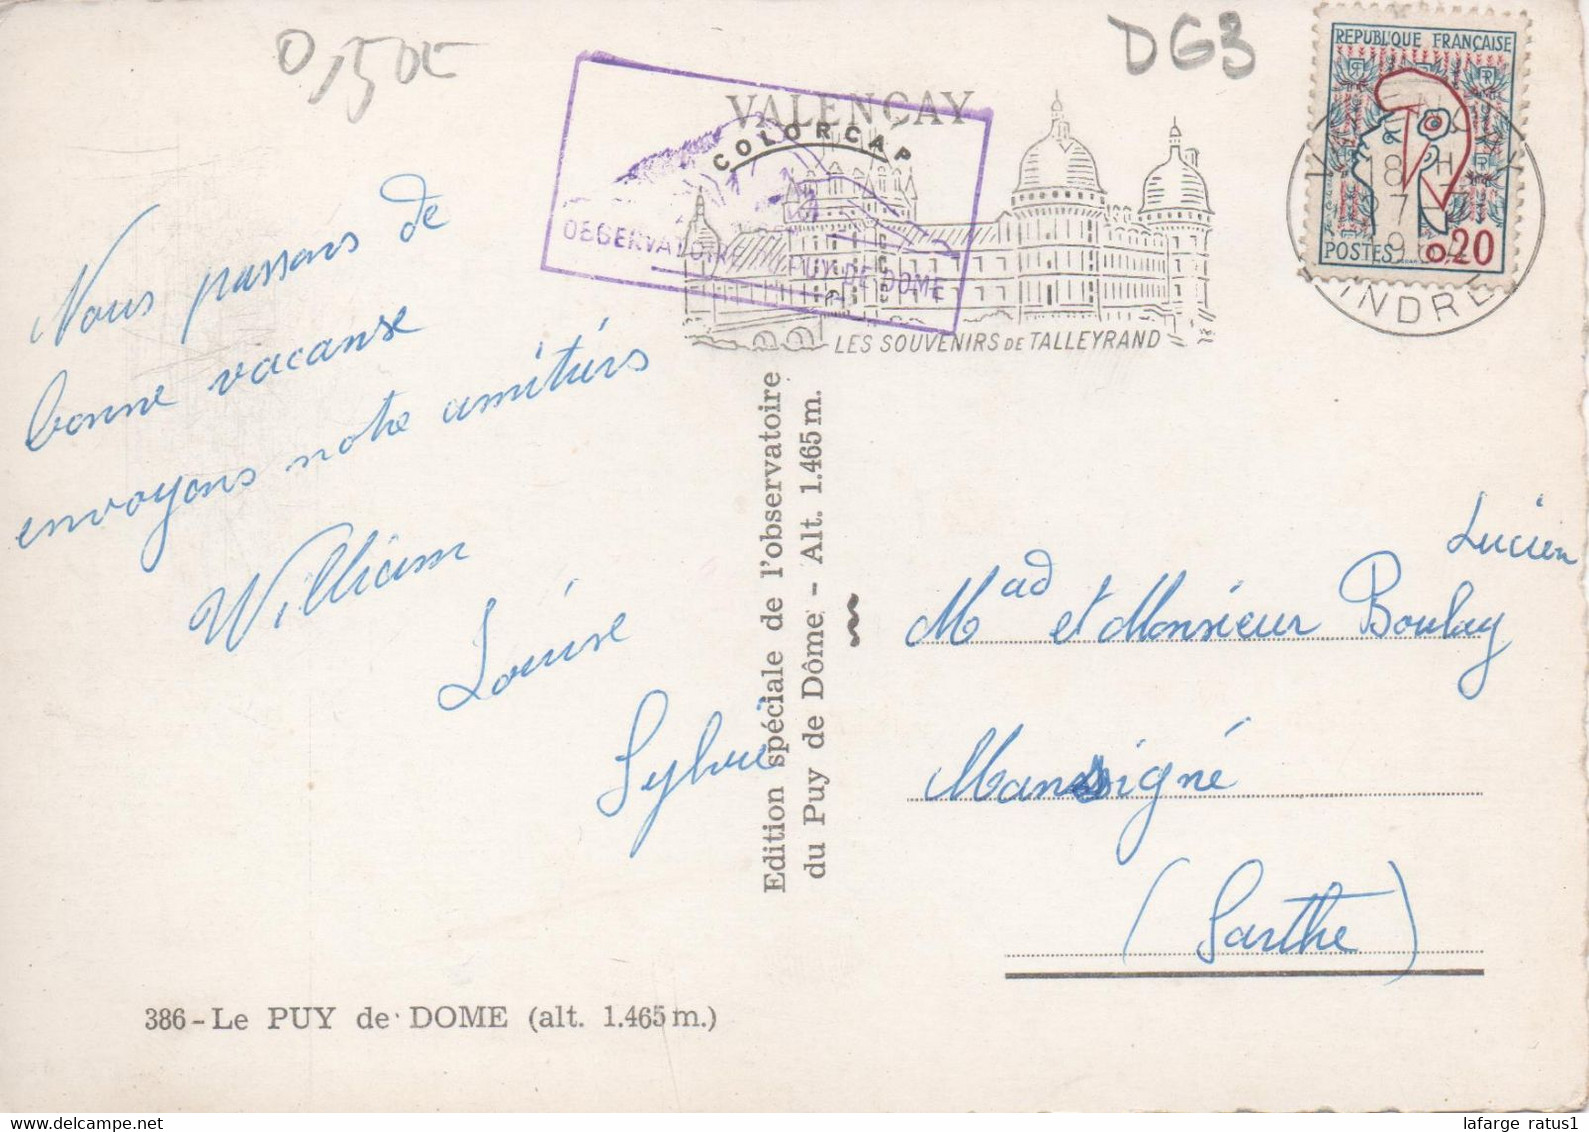 0,50€
DG3
REPUBLIQUE FRANÇAISE
POSTES 0.20
18 H
INDRE
VALENCAY
COLORCAP
OBSERVATOIRE PUY DE DOME
LES SOUVENIRS DE TALLEYRAND
Nous passons de
bonne vacanse
envoyons notre amitiérs
William
Louise
Sylvie
Edition spéciale de l'observatoire
du Puy de Dôme - Alt. 1.465 m.
Lucien
Mad et Monsieur Boulay
Mansigné
(Sarthe)
386 - Le PUY de DOME (alt. 1.465 m.)
delcampe.net
lafarge_ratus1